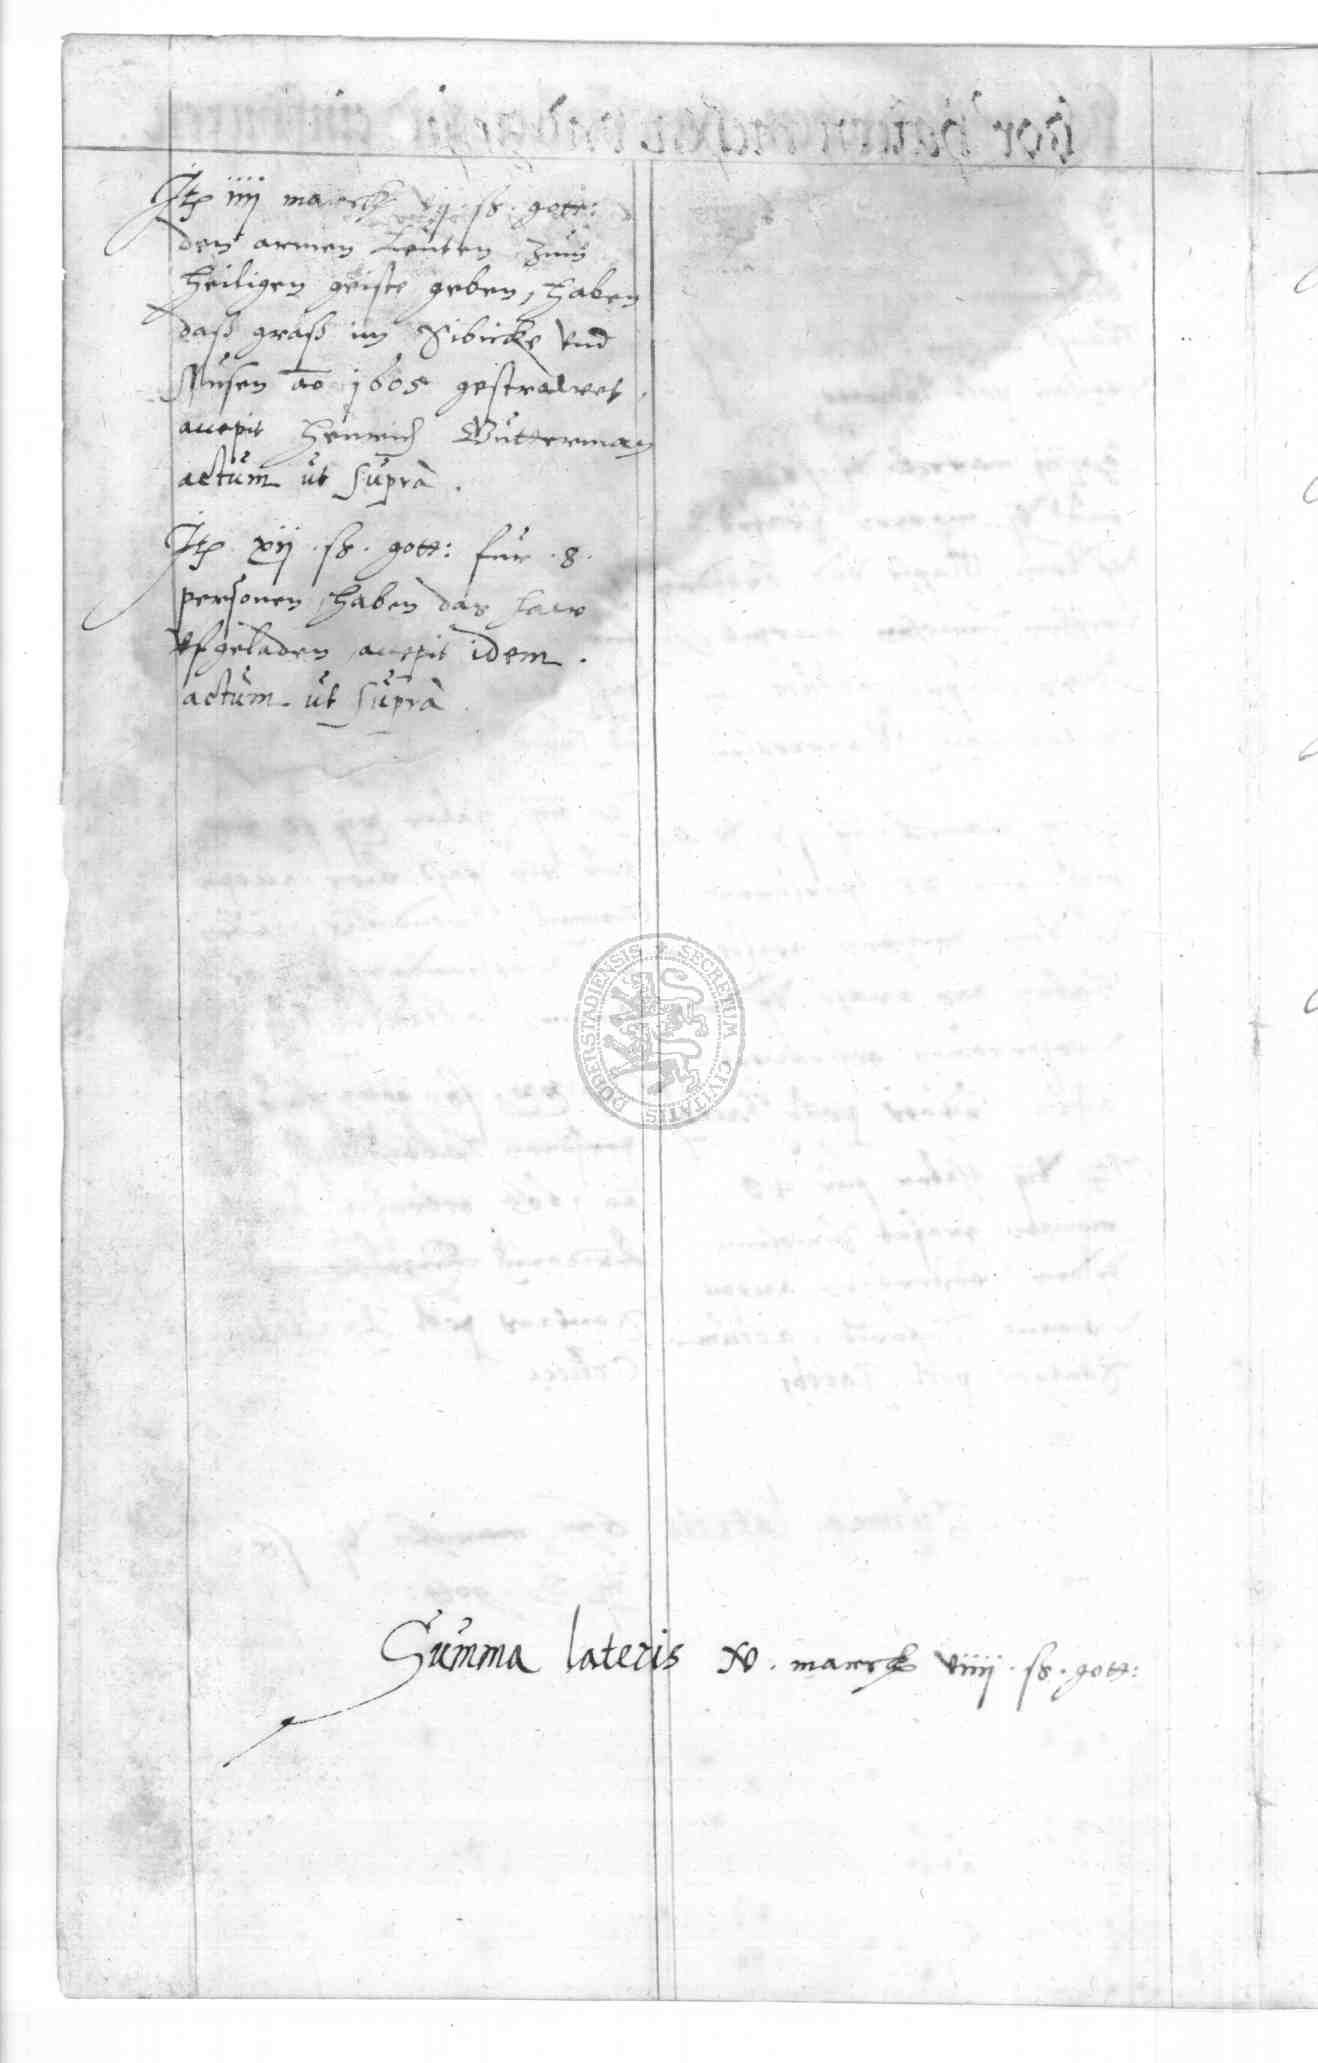 Itz iiij marck vij ß. gott:
den armen Leuten zum
heiligen geiste geben, haben
daß graß im Sibicke vnd
Nusen ao 1605 gestralwet
accepit Henrich Butterman
actum ut supra.
Itz xij ß. gott: für 8.
personen, haben das haw
vfgeladen accepit idem.
actum ut supra
DUDERSTADIENSIS SECRETUM CIVITATIS
Summa lateris xv. marck viiij ß. gott: